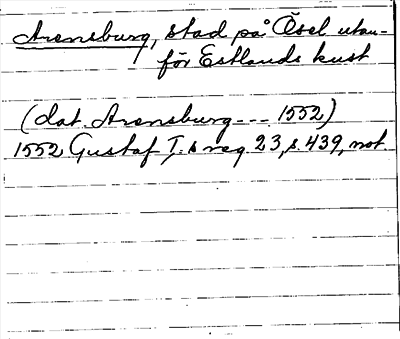 Arensburg, stad på Ösel utan-
för Estlands kust
(dat. Arensburg --- 1552)
1552 Gustaf I:s reg. 23, s. 439, not